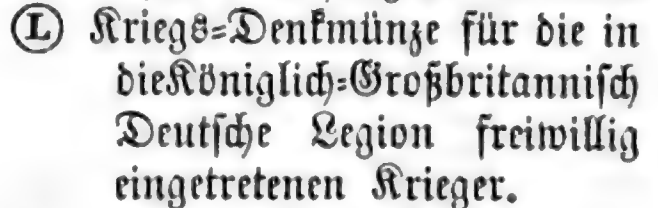 Ⓛ Kriegs=Denkmünze für die in
dieKöniglich=Großbritannisch
Deutsche Legion freiwillig
eingetretenen Krieger.